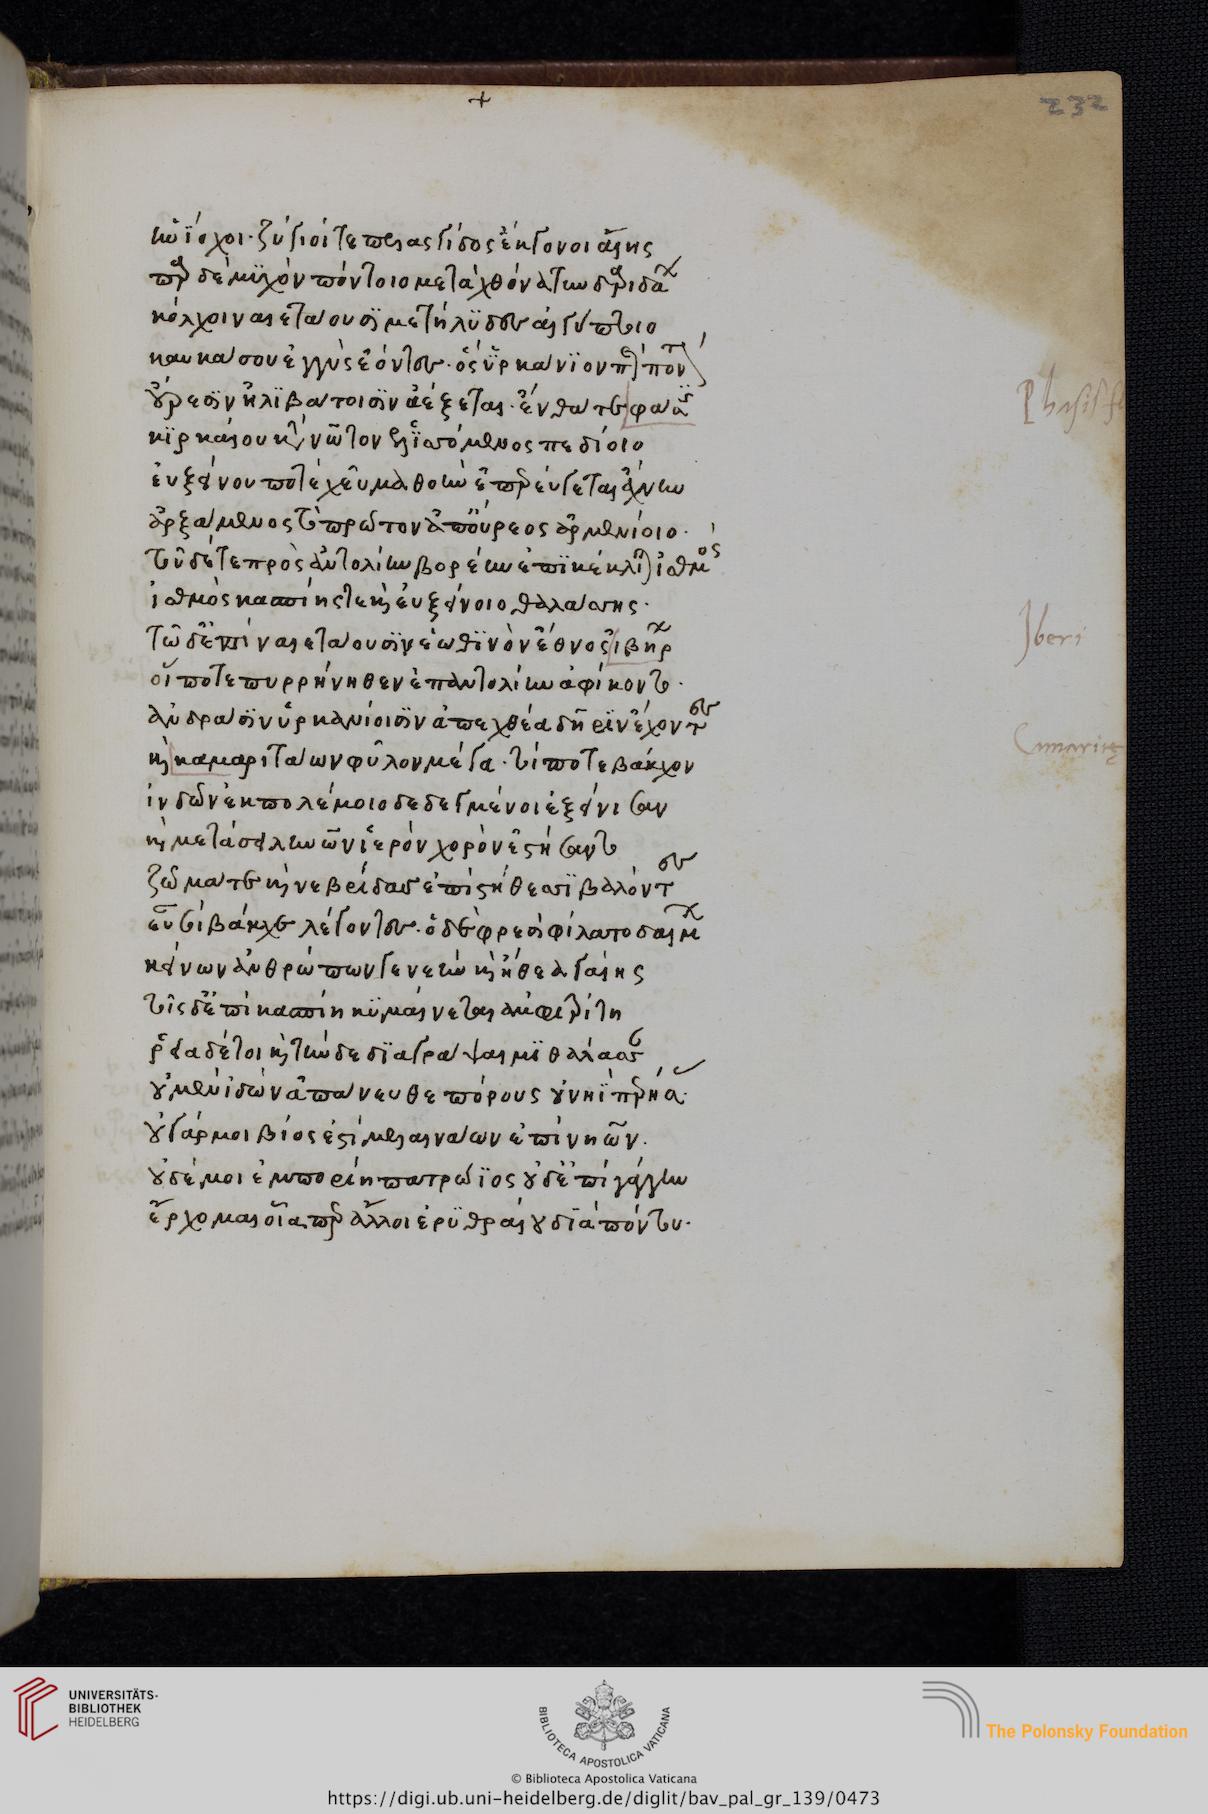 +
232
ἡνίοχοι· ζύγιοί τε πελασγίδος ἔκγονοι αἴης
πὰρ δὲ μϋχὸν πόντοιο μετὰ χθόνα τυνδαριδάων
κόλχοι ναιετάουσϊ μετήλϋδες αἰγύπτοιο
καυκάσου ἐγγὺς ἐόντες· ὃς ὑρκάνϊον περὶ πόντον
οὔρεσϊν ἠλϊβάτοισϊν ἀέξεται· ἔνθά τε φᾶσϊς
κϊρκαίου κατὰ νῶτον ἑλϊσσόμενος πεδίοιο
ἐυξείνου ποτὲ χεῦμα θοὴν ἐπερεύγεται ἄχνην
ἀρξάμενος τὸ πρῶτον ἀπ' οὔρεος ἀρμενίοιο·
τοῦ δέ τε πρὸς ἀντολίην βορέην ἐπϊκέκλιται ἰσθμός
ἰσθμὸς κασπίης τε καὶ ἐυξείνοιο θαλάσσης·
τῷ δ' ἔπϊ ναιετάουσϊν ἑωθϊνὸν ἔθνος ἰβήρων
οἵ ποτε πυρρήνηθεν ἐπ' ἀντολίην ἀφίκοντο·
ἀνδράσϊν ὑρκανίοισϊν ἀπεχθέα δῆρϊν ἔχοντες
καὶ καμαριτάων φῦλον μέγα· τοί ποτε βάκχον
ἰνδῶν ἐκ πολέμοιο δεδεγμένοι ἐξείνισσαν
καὶ μετὰ σειληνῶν ἱερὸν χορὸν ἐστήσαντο
ζώματα καὶ νεβρίδας ἐπὶ στήθεσσϊ βαλόντες
εὖ οἷ βάκχε λέγοντες· ὁ δὲ φρεσὶ φίλατο δαίμων
κείνων ἀνθρώπων γενεήν καὶ ἤθεα γαίης
τοῖς δ' ἔπϊ κασπίη κϋμαίνεται ἀμφιτρίτη
ῥεῖα δέ τοι καὶ τήνδε δϊαγράψαιμϊ θάλασσαν
οὐ μὲν ἰδὼν ἀπάνευθε πόρους οὐ νηῒ περήσας·
οὐ γάρ μοι βίος ἐστὶ μελαινάων ἐπὶ νηῶν·
οὐδέ μοι ἐμπορίη πατρώϊος οὐδ' ἐπὶ γάγγην
ἔρχομαι οἷά περ ἄλλοι ἐρϋθραίου δϊὰ πόντου·
Iberi
UNIVERSITÄTS-
BIBLIOTHEK
HEIDELBERG
BIBLIOTECA APOSTOLICA VATICANA
The Polonsky Foundation
© Biblioteca Apostolica Vaticana
https://digi.ub.uni-heidelberg.de/diglit/bav_pal_gr_139/0473